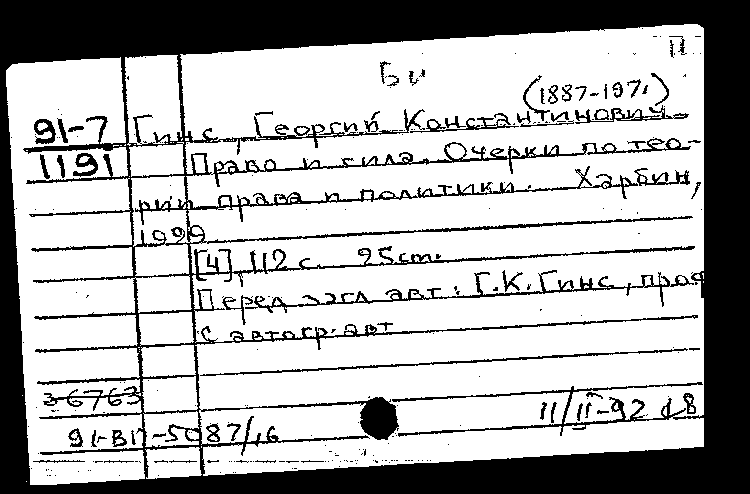 II
Би
(1887-1971)
91-7 Гинс, Георгий Константинович.
1191 Право и сила. Очерки по тео-
рии права и политики. Харбин,
1929
[4], 112 с. 25cm.
Перед загл авт: Г.К.Гинс, проф
с автогр. авт
36763
91-ВП-5087/16
11/II-92